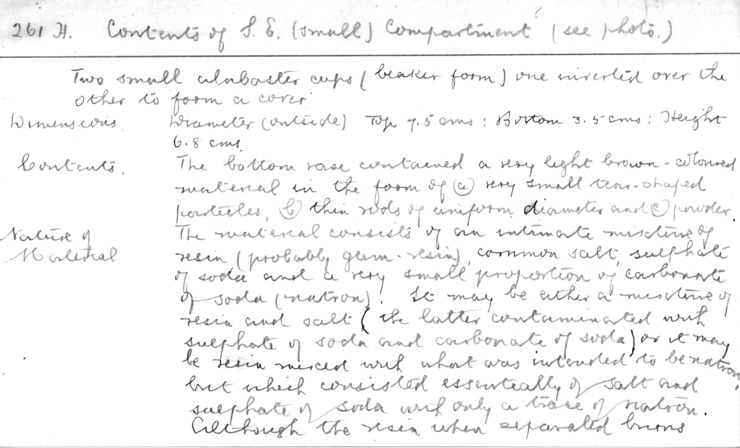 261 H. Contents of S. E. (small) Compartment (see photo.)
Two small alabaster cups (beaker form) one inverted over the
other to form a cover
Dimensions. Diameter (outside) Top 7.5 cms: Bottom 3.5 cms: Height
6.8 cms.
Contents. The bottom vase contained a very light brown-coloured
material in the form of (a) very small tear-shaped
particles, (b) thin rods of uniform diameter and (c) powder.
Nature of The material consists of an intimate mixture of
Material resin (probably gum-resin), common salt, sulphate
of soda and a very small proportion of carbonate
of soda (natron). It may be either a mixture of
resin and salt (the latter contaminated with
sulphate of soda and carbonate of soda) or it may
be resin mixed with what was intended to be natron,
but which consisted essentially of salt and
sulphate of soda with only a trace of natron.
Although the resin when separated burns